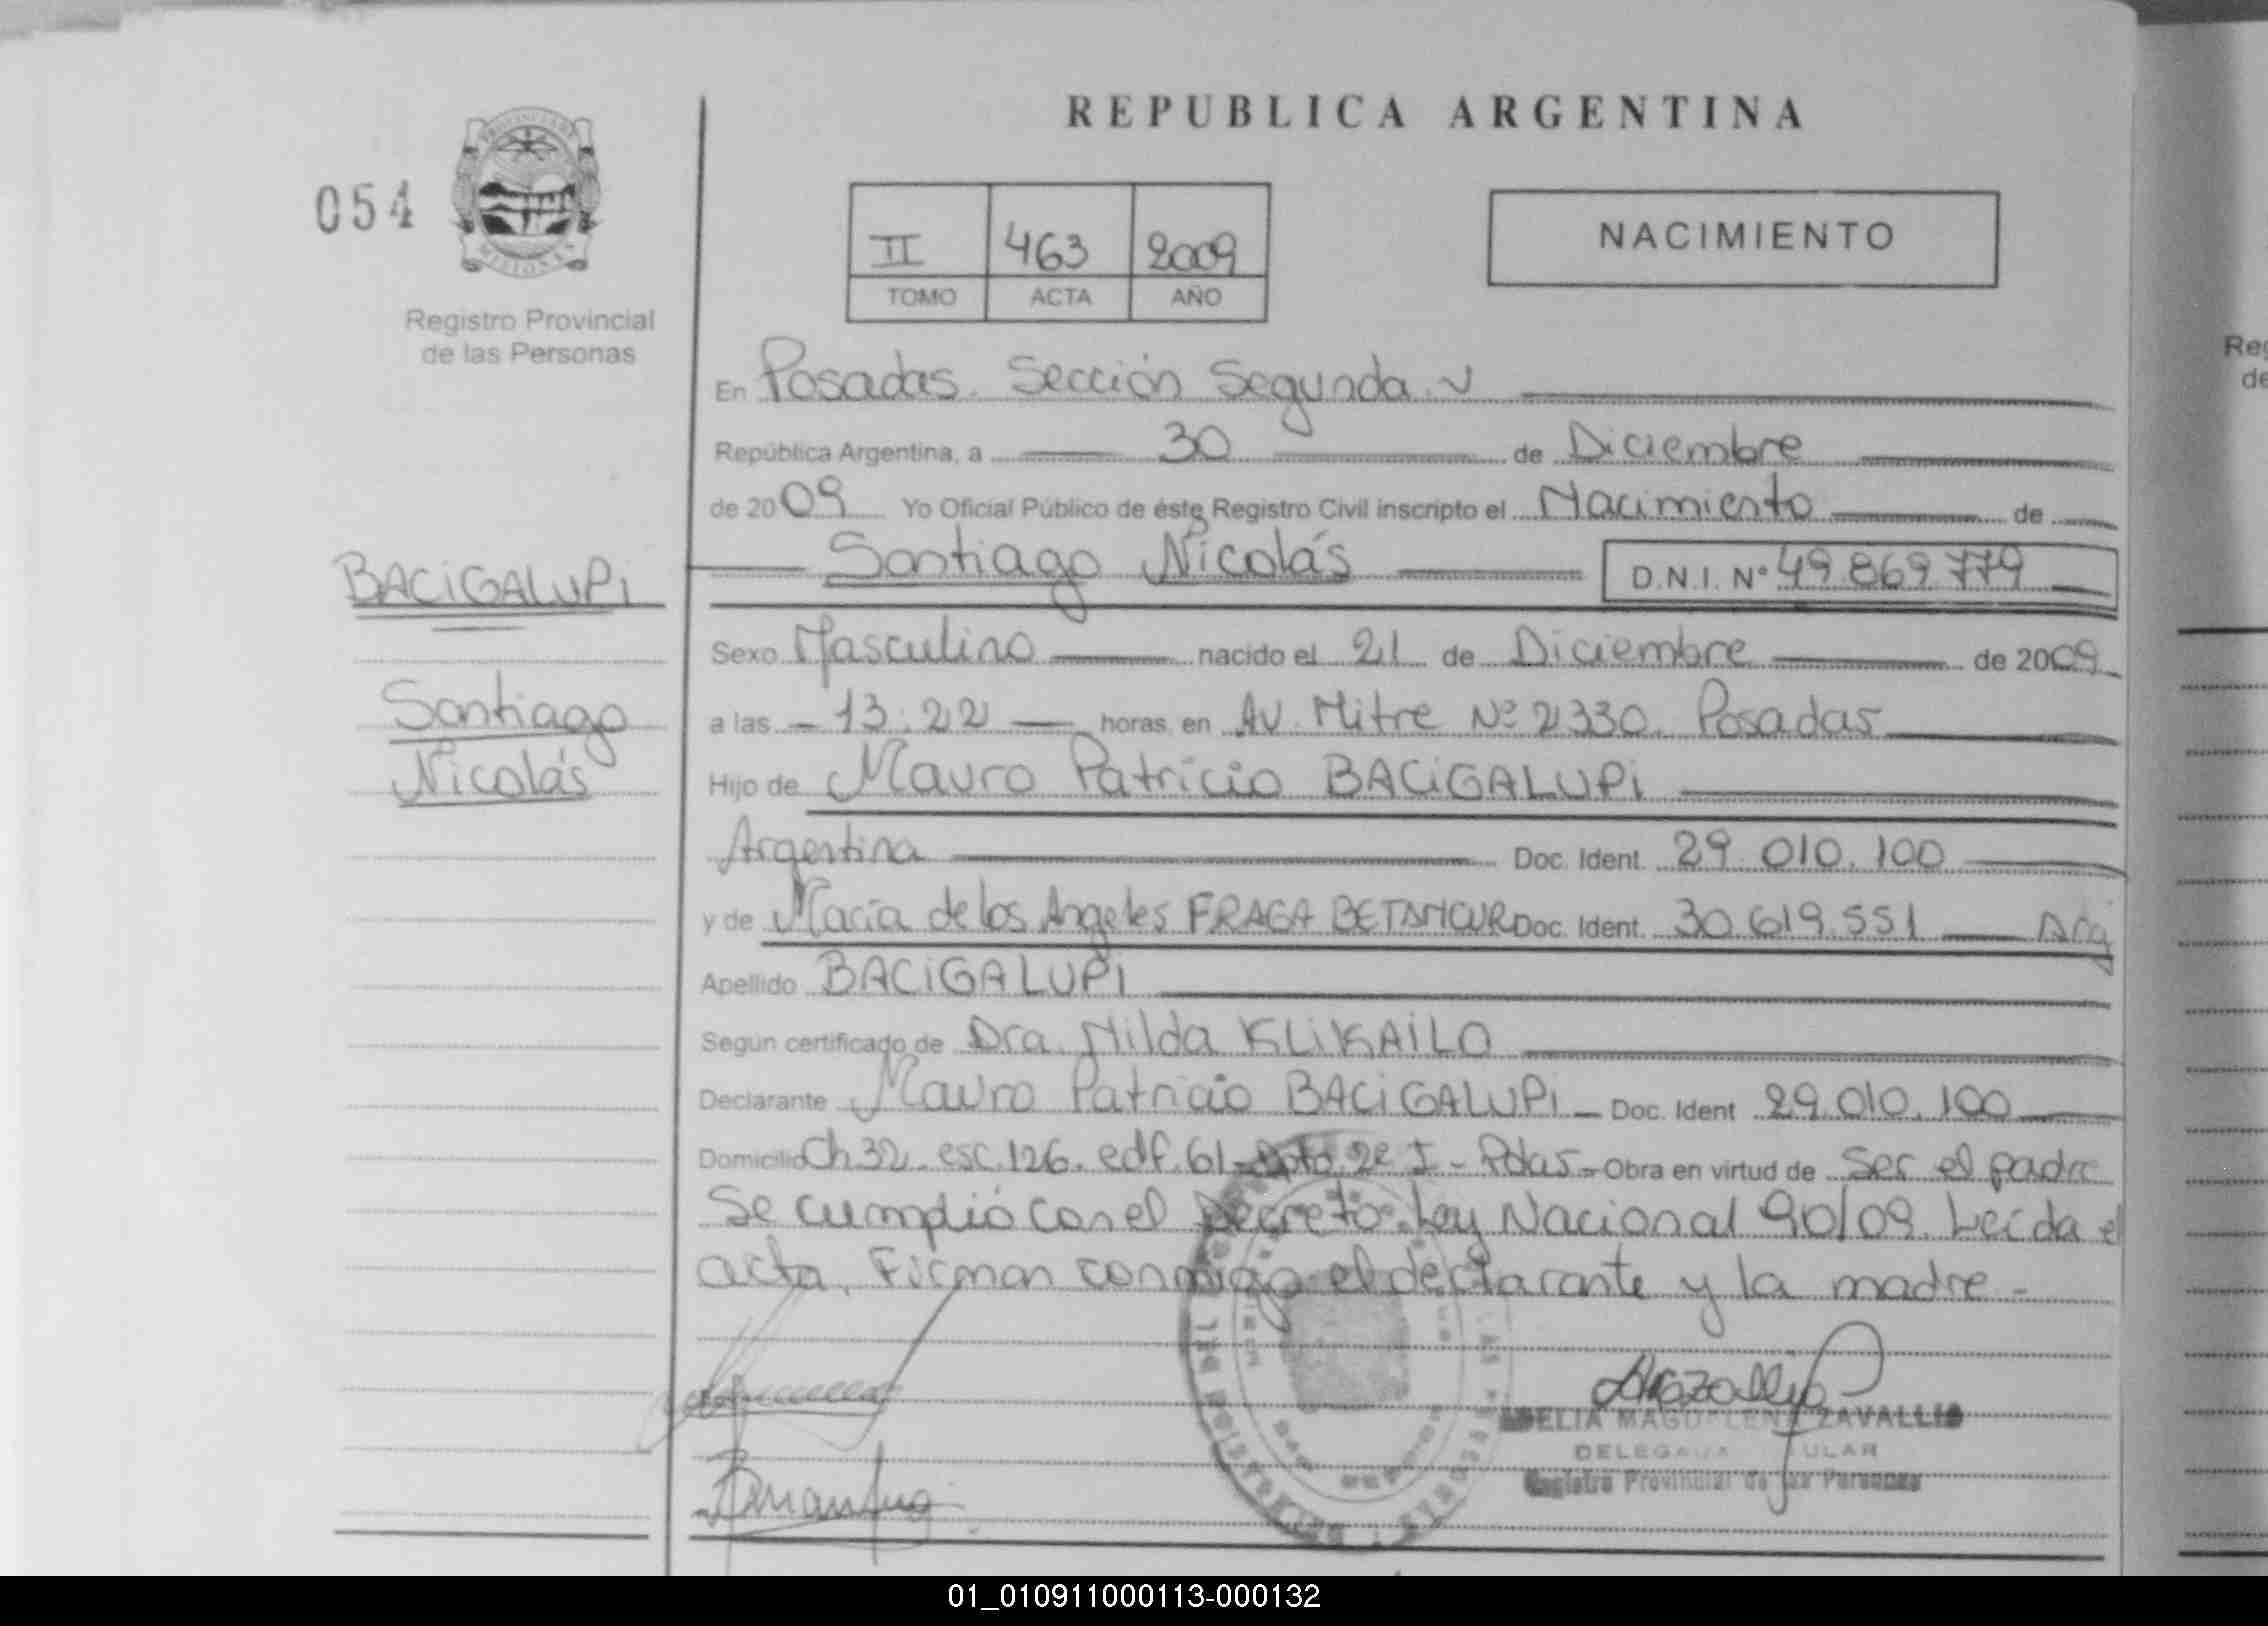 REPUBLICA ARGENTINA
054
II 463 2009
TOMO ACTA AÑO
NACIMIENTO
Registro Provincial
de las Personas
En Posadas. Sección Segunda.
República Argentina, a 30 de Diciembre
de 2009 Yo Oficial Público de éste Registro Civil inscripto el Nacimiento de
Santiago Nicolás D.N.I. Nº 49 869 779
BACiGALUPi
Sexo Masculino nacido el 21 de Diciembre de 2009
Santiago
Nicolás
a las 13:22 horas, en AV. Mitre Nº 2330. Posadas
Hijo de Mauro Patricio BACiGALUPi
Argentina Doc. Ident. 29.010.100
y de María de los Angeles FRAGA BETANCUR Doc. Ident. 30.619.551 Arg
Apellido BACiGALUPi
Según certificado de Dra. Nilda KLiKAiLO
Declarante Mauro Patricio BACiGALUPi Doc. Ident 29.010.100
Domicilio Ch 32. esc. 126. edf. 61 - 2º I - Pdas - Obra en virtud de Ser el padre
Se cumplió con el Decreto-Ley Nacional 90/09. Leída el
acta, Firman conmigo el declarante y la madre -
ADELIA MAGDALENA ZAVALLIO
DELEGADA TITULAR
Registro Provincial de las Personas
01_010911000113-000132